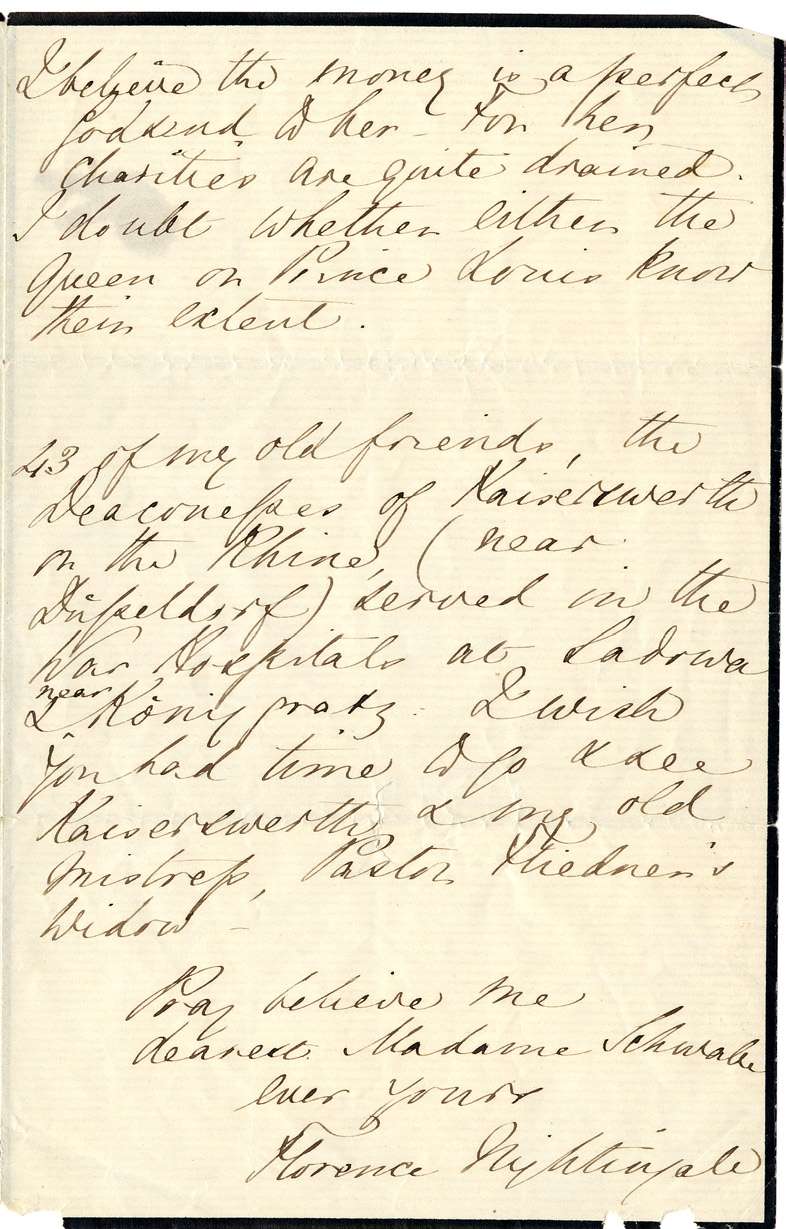 I believe the money is a perfect
"Godsend" to her - For her
charities are quite drained.
I doubt whether either the
Queen or Prince Louis know
their extent.
43 of my old friends, the
Deaconesses of Kaiserswerth
on the Rhine, (near
Düsseldorf) served in the
War Hospitals at Sadowa
near
& Königgratz. I wish
you had time to go & see
Kaiserswerth & my old
mistress, Pastor Fliedner's
widow -
Pray believe me
dearest Madame Schwabe
ever yours
Florence Nightingale